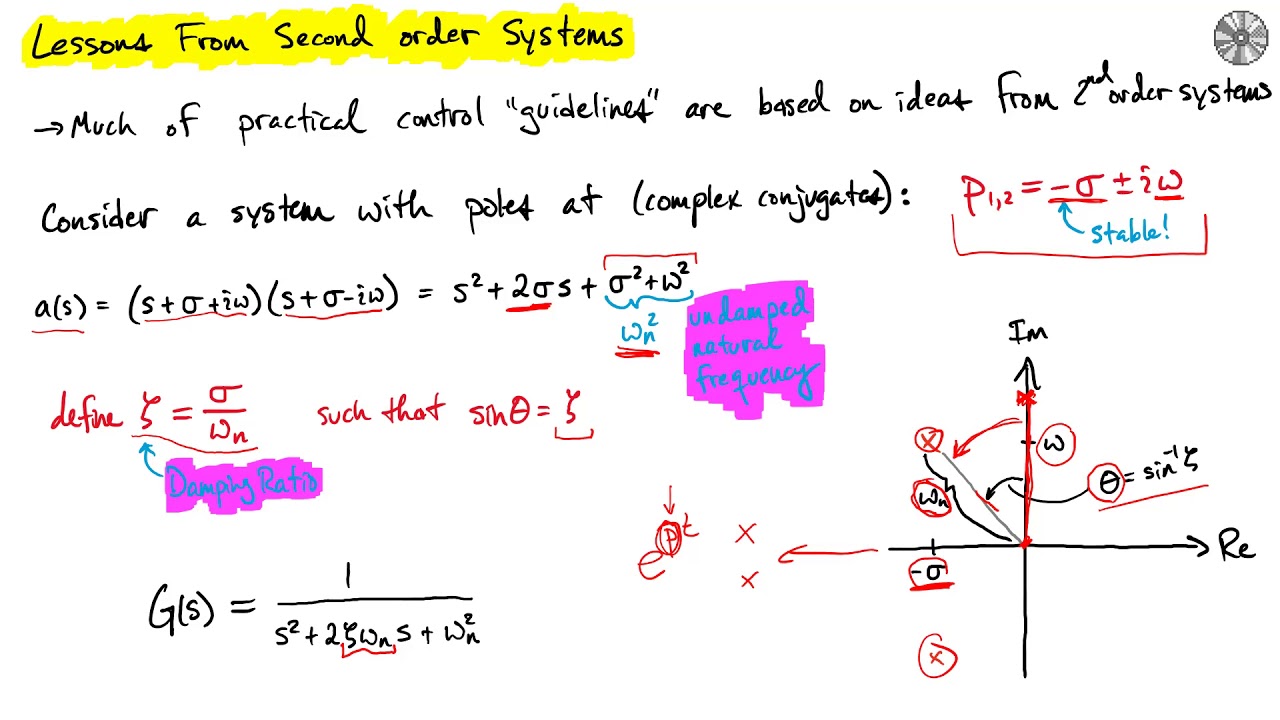 Lessons From Second order Systems
→ Much of practical control "guidelines" are based on ideas from 2nd order systems
Consider a system with poles at (complex conjugates): P1,2 = -σ ± iω
stable!
a(s) = (s+σ+iω)(s+σ-iω) = s² + 2σs + σ²+ω²
ωn²
undamped
natural
frequency
define ζ = σ/ωn such that sinθ = ζ
Damping Ratio
G(s) = 1/(s² + 2ζωn s + ωn²)
e^pt
Im
ω
ωn
θ = sin⁻¹ζ
Re
-σ